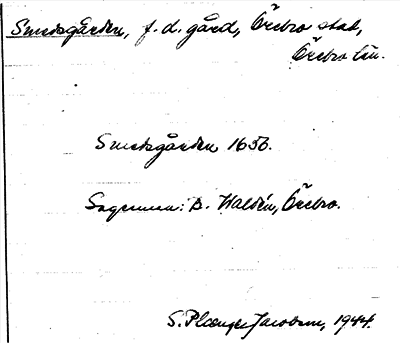 Smedsgården, f.d. gård, Örebro stad,
Örebro län.
Smedsgården 1656.
Sagesman: B. Waldén, Örebro.
S. Jacobson, 1944.